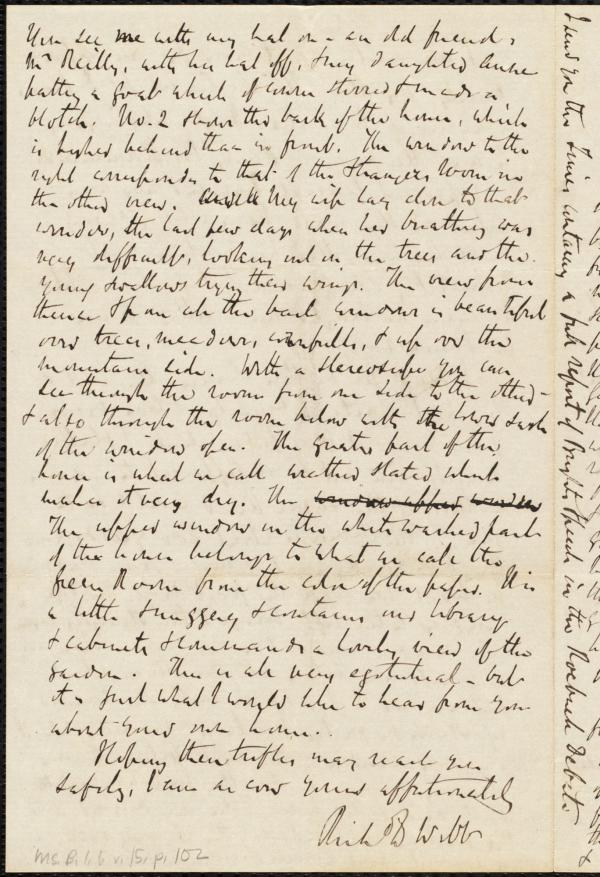 You see me with my hat on - an old friend,
Mrs Reilly, with her hat off, & my daughter Anne
patting a goat which of course stirred & made a
blotch. No. 2 shows the back of the house, which
is higher behind than in front. The window to the
right corresponds to that of the Strangers Room in
the other view. My wife lay close to that
window, the last few days when her breathing was
very difficult, looking out on the trees and the
young swallows trying their wings. The view from
thence & from all the back windows is beautiful
over trees, meadows, cornfields, & up over the
mountain side. With a stereoscope you can
see through the room from one side to the other -
& also through the room below with the lower sash
of the window open. The greater part of the
house is what we call weather slated which
makes it very dry. The window upper window
The upper window in the white washed part
of the house belongs to what we call the
Green Room from the color of the paper. It is
a little snuggery & contains our library
& cabinets & commands a lovely view of the
garden. This is all very egotistical - but
it is just what I would like to hear from you
about your own home.
Hoping these trifles may reach you
safely, I am as ever yours affectionately
Richd D Webb
Ms. B. 1. 6 v. 15, p. 102
I send you the Times containing a full report of Bright's Speech in the Roebuck Debate